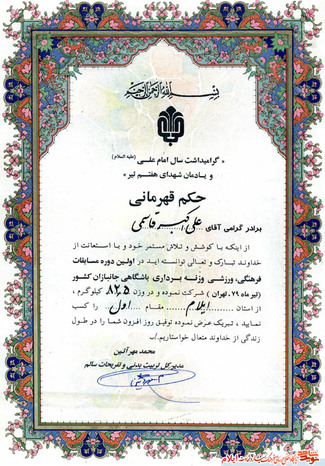 بسم الله الرحمن الرحیم
« گرامیداشت سال امام علی (علیه السلام)
و یادمان شهدای هفتم تیر »
حکم قهرمانی
برادر گرامی آقای علی اکبر قاسمی
از اینکه با کوشش و تلاش مستمر خود و با استعانت از
خداوند تبارک و تعالی توانسته اید در اولین دوره مسابقات
فرهنگی، ورزشی وزنه برداری باشگاهی جانبازان کشور
(تیر ماه ۷۹ ـ تهران) شرکت نموده و در وزن ۸۲.۵ کیلوگرم ،
از استان ایلام مقام اول را کسب
نمایید ، تبریک عرض نموده توفیق روز افزون شما را در طول
زندگی از خداوند متعال خواستاریم./ب
محمد مهرآئین
مدیر کل تربیت بدنی و تفریحات سالم